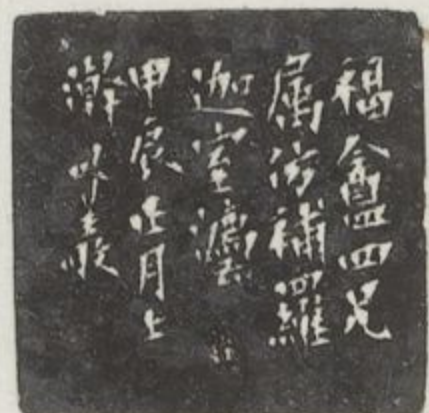 福盦四兄
属仿補羅
迦室灋
甲辰正月上
澣 叶